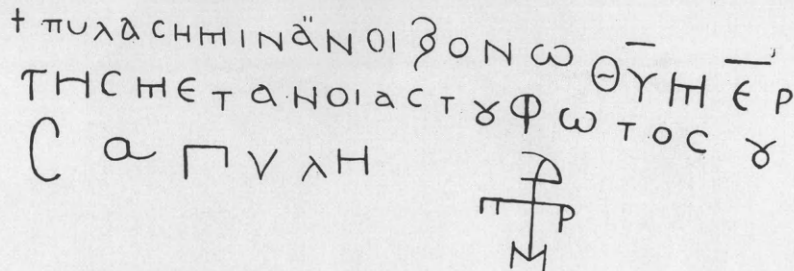 † ΠΥΛΑCΗΜΙΝΑΝΟΙΞΟΝΩΘΥ̅ΜΕ̅Ρ̅
ΤΗCΜΕΤΑΝΟΙΑCΤȢΦΩΤΟCȢ
CΑΠΥΛΗ